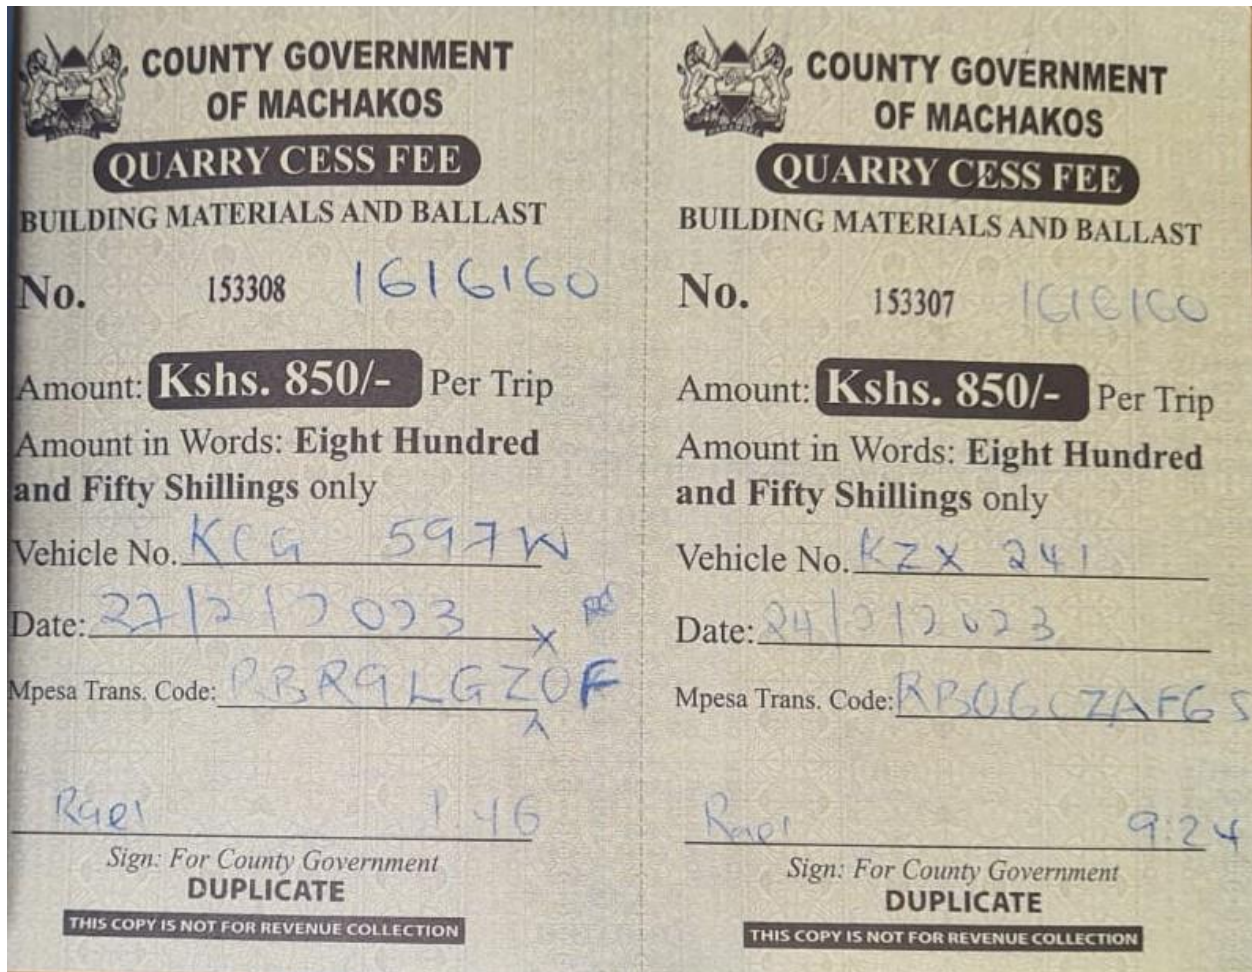 COUNTY GOVERNMENT
OF MACHAKOS
QUARRY CESS FEE
BUILDING MATERIALS AND BALLAST
No. 153308 1616160
Amount: Kshs. 850/- Per Trip
Amount in Words: Eight Hundred
and Fifty Shillings only
Vehicle No. KCG 597W
Date: 27/2/2023
Mpesa Trans. Code:
Rael 1:46
Sign: For County Government
DUPLICATE
THIS COPY IS NOT FOR REVENUE COLLECTION
COUNTY GOVERNMENT
OF MACHAKOS
QUARRY CESS FEE
BUILDING MATERIALS AND BALLAST
No. 153307 1616160
Amount: Kshs. 850/- Per Trip
Amount in Words: Eight Hundred
and Fifty Shillings only
Vehicle No. KZX 241
Date: 24/2/2023
Mpesa Trans. Code:
Rael 9:24
Sign: For County Government
DUPLICATE
THIS COPY IS NOT FOR REVENUE COLLECTION